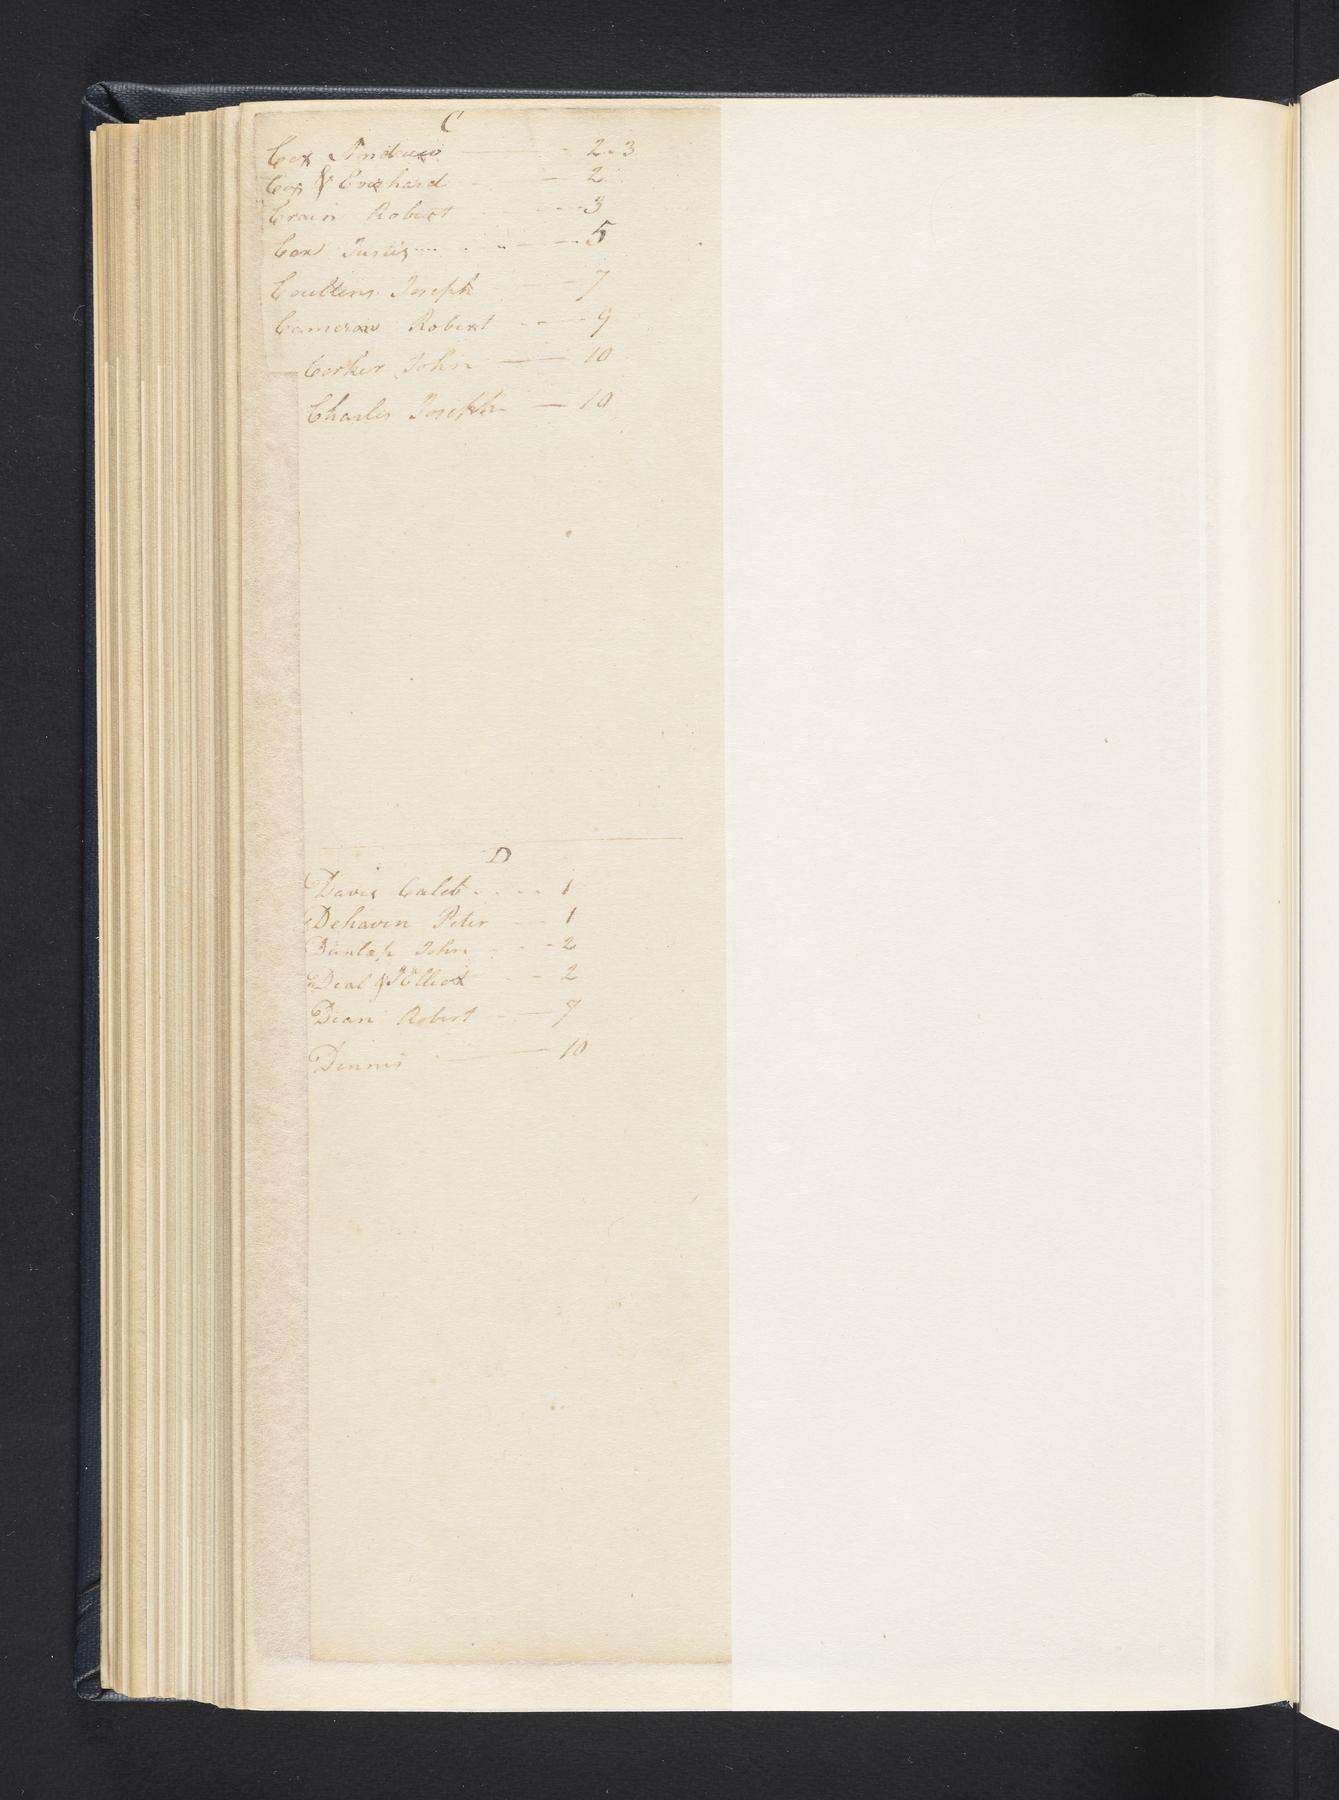 C
Cox Andrew - 2.3
Cox & Everhard - - 2
Crain Robert - - - 3
Cox Justis - - - 5
Coultens Joseph - 7
Cameron Robert - - - 9
Corker John - 10
Charles Joseph - 10
D
Davis Caleb - - - - 1
Dehaven Peter - 1
Dunlap John - - - 2
Deal & Elliot - - 2
Dean Robert - - 7
Dennis - 10